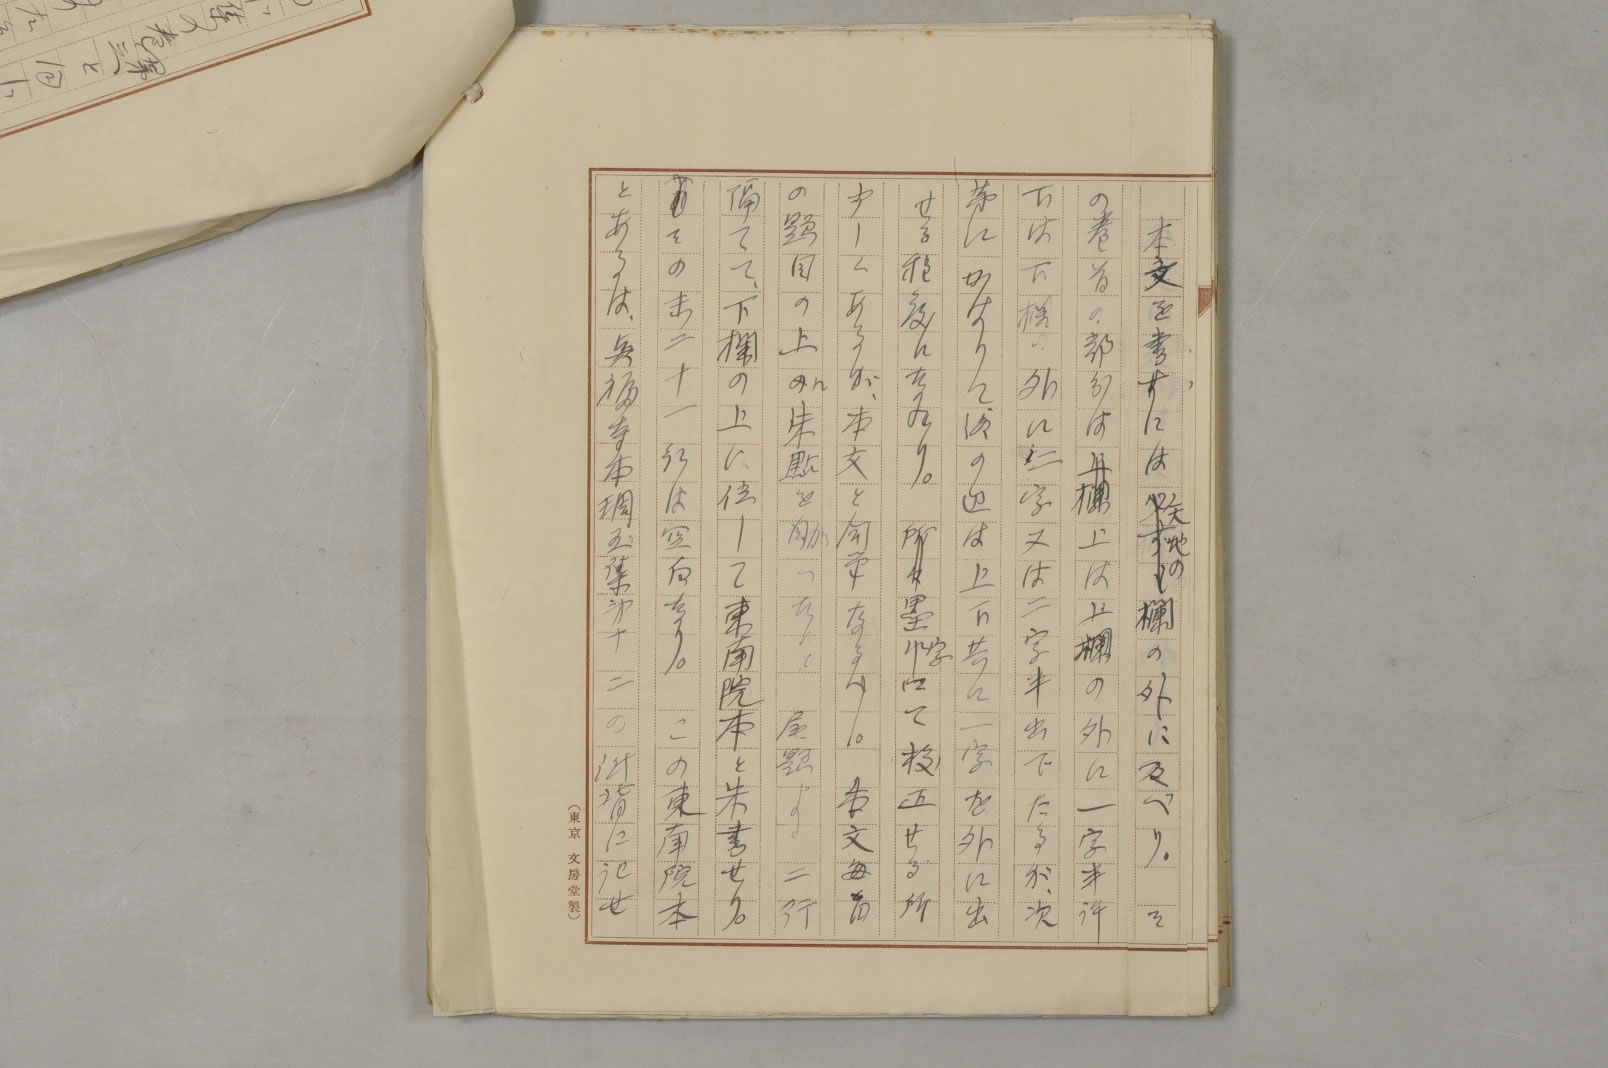 本文を書すには天地の欄の外に及べり。そ
の巻首の部分は上は上欄の外に一字半許
下は下欄の外に一字又は二字半出でたるが、次
第にかはりて終の辺は上下共に一字を外に出
せる程度になれり。所々墨字にて校正せる所
少しくあるが、本文と同筆なるべし。本文毎首
の題目の上に朱點を加へたり。尾題より二行
隔てて、下欄の上に位して東南院本と朱書せり。
その末二十一行は空白なり。この東南院本
とあるは、興福寺本琱玉集第十二の紙背に記せ
(東京 文房堂製)